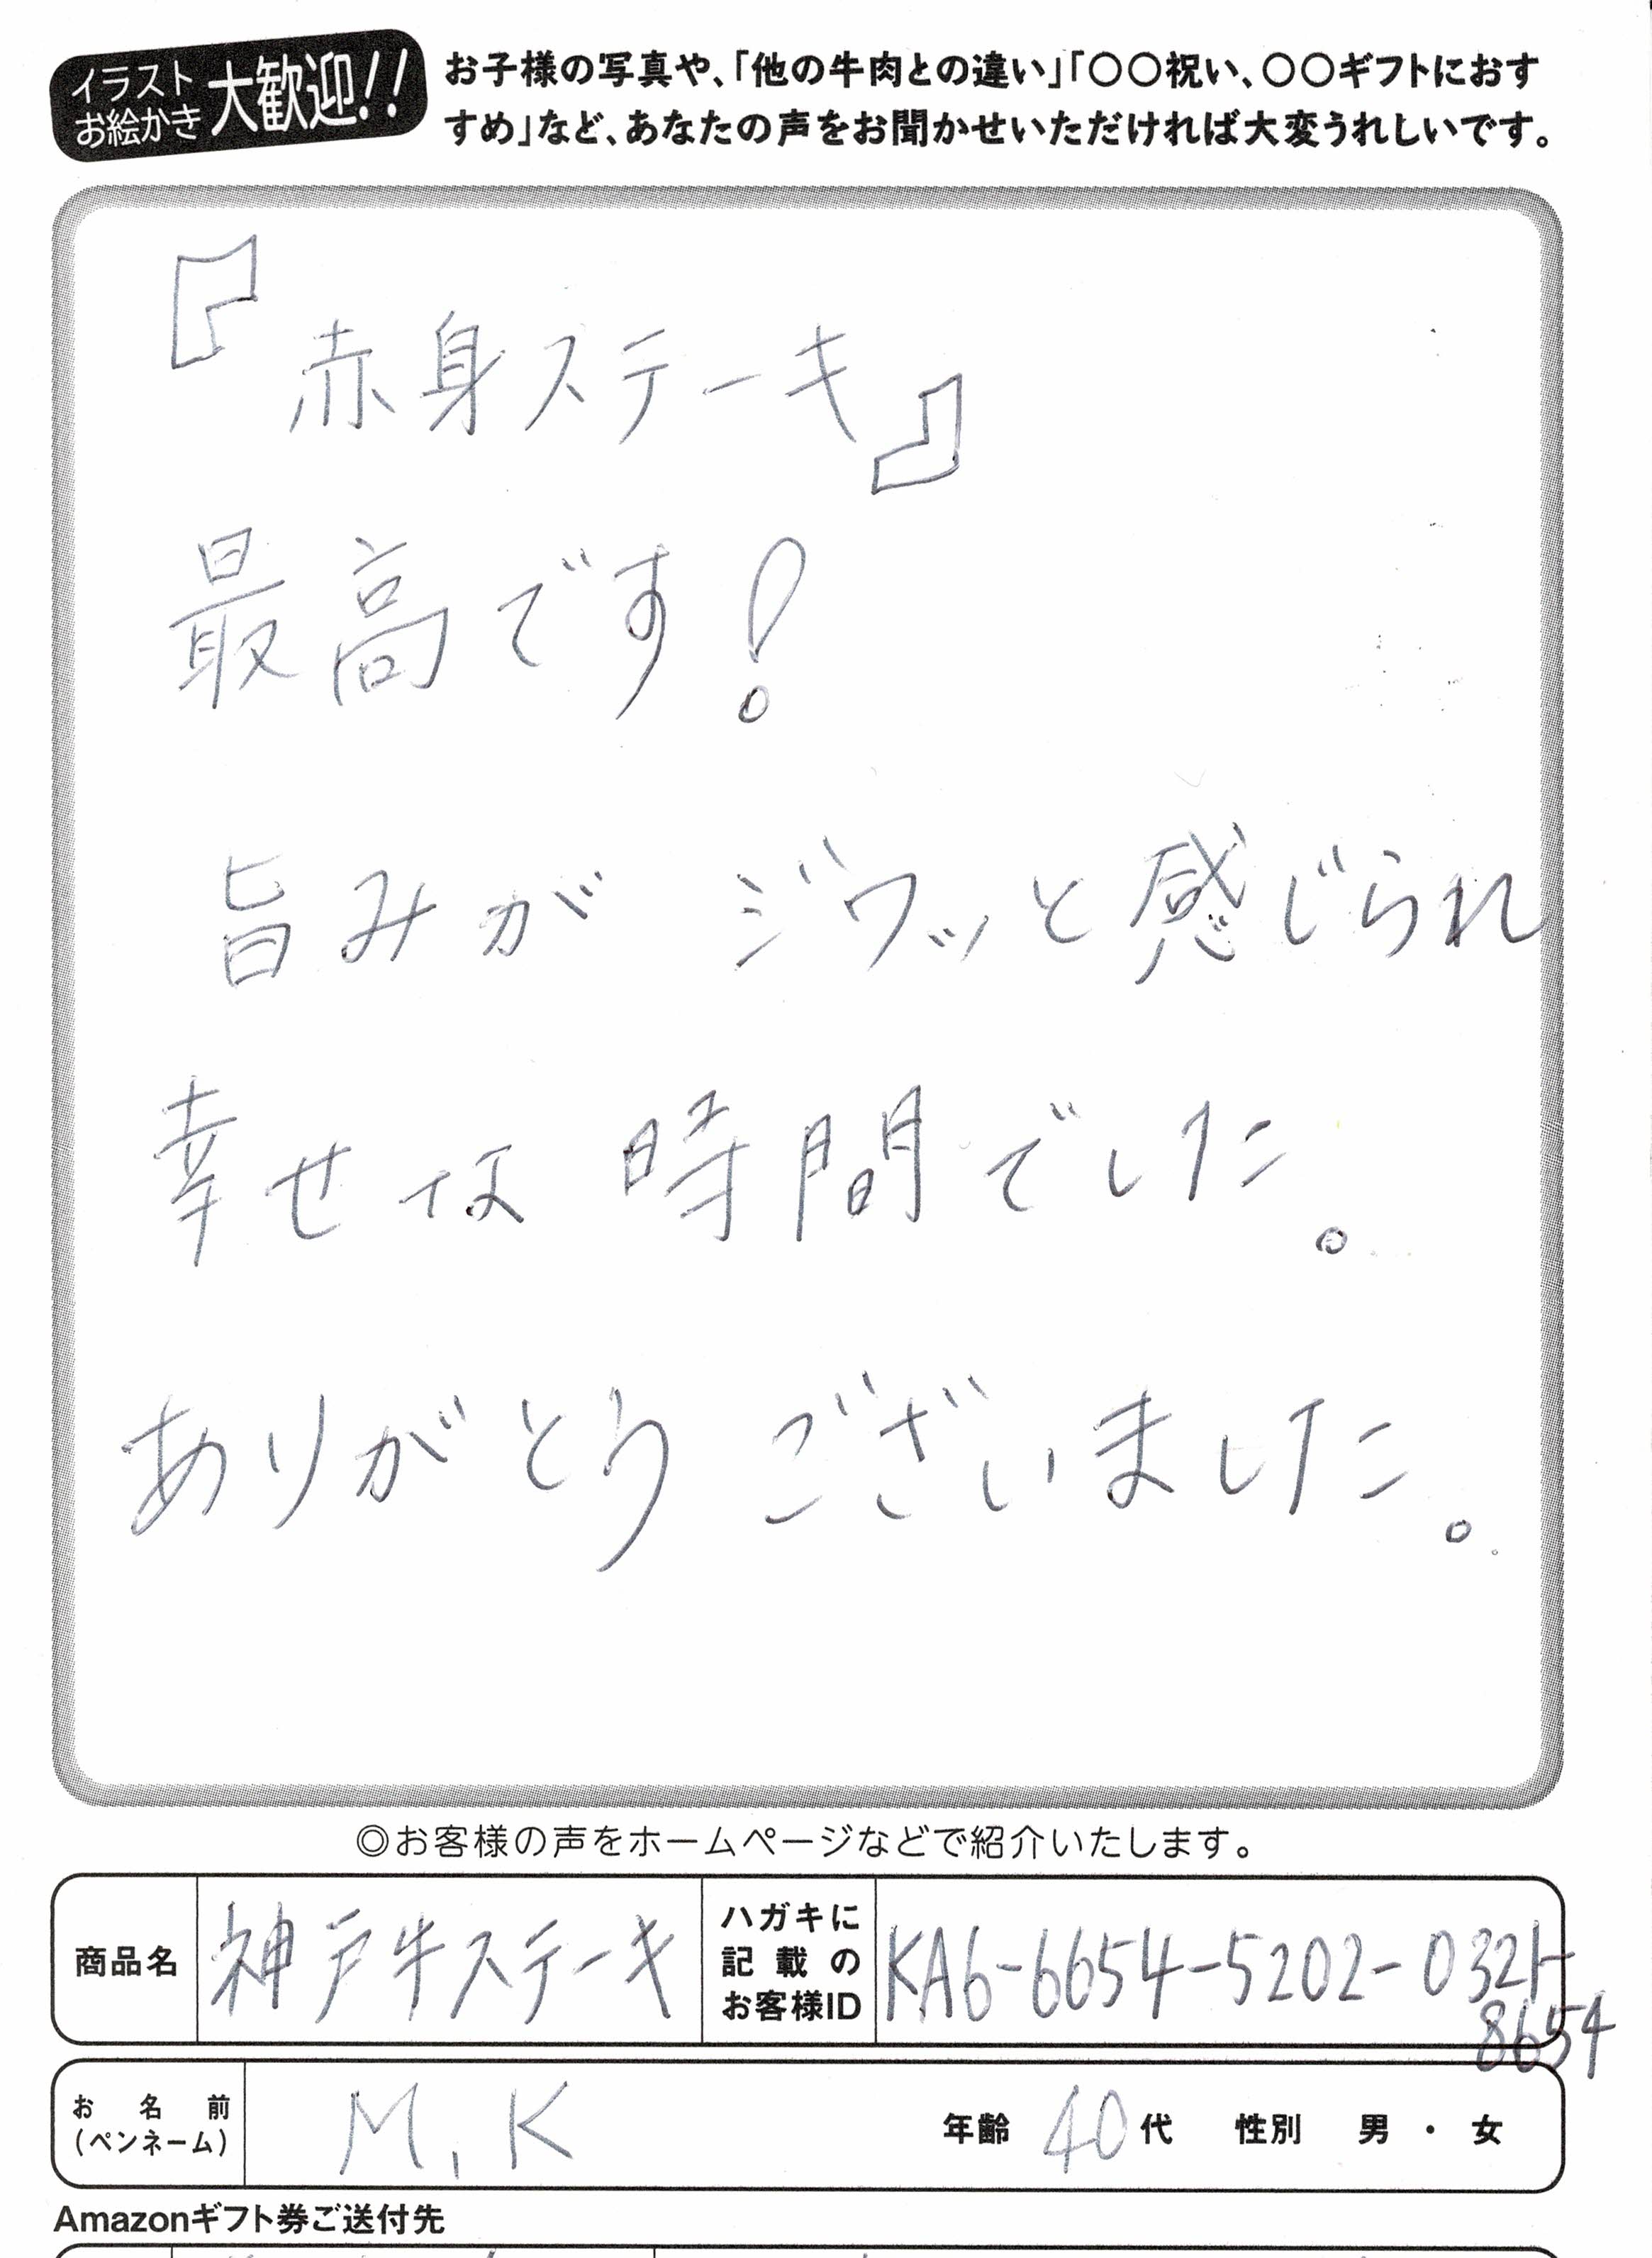 イラスト
お絵かき
大歓迎!!
お子様の写真や、「他の牛肉との違い」「〇〇祝い、〇〇ギフトにおす
すめ」など、あなたの声をお聞かせいただければ大変うれしいです。
『赤身ステーキ』
最高です!
旨みが ジワッと感じられ
幸せな時間でした。
ありがとうございました。
◎お客様の声をホームページなどで紹介いたします。
商品名 神戸牛ステーキ
ハガキに
記載の
お客様ID
KA6-6654-5202-0321-
8654
お名前
(ペンネーム)
M.K
年齢 40代 性別 男・女
Amazonギフト券ご送付先